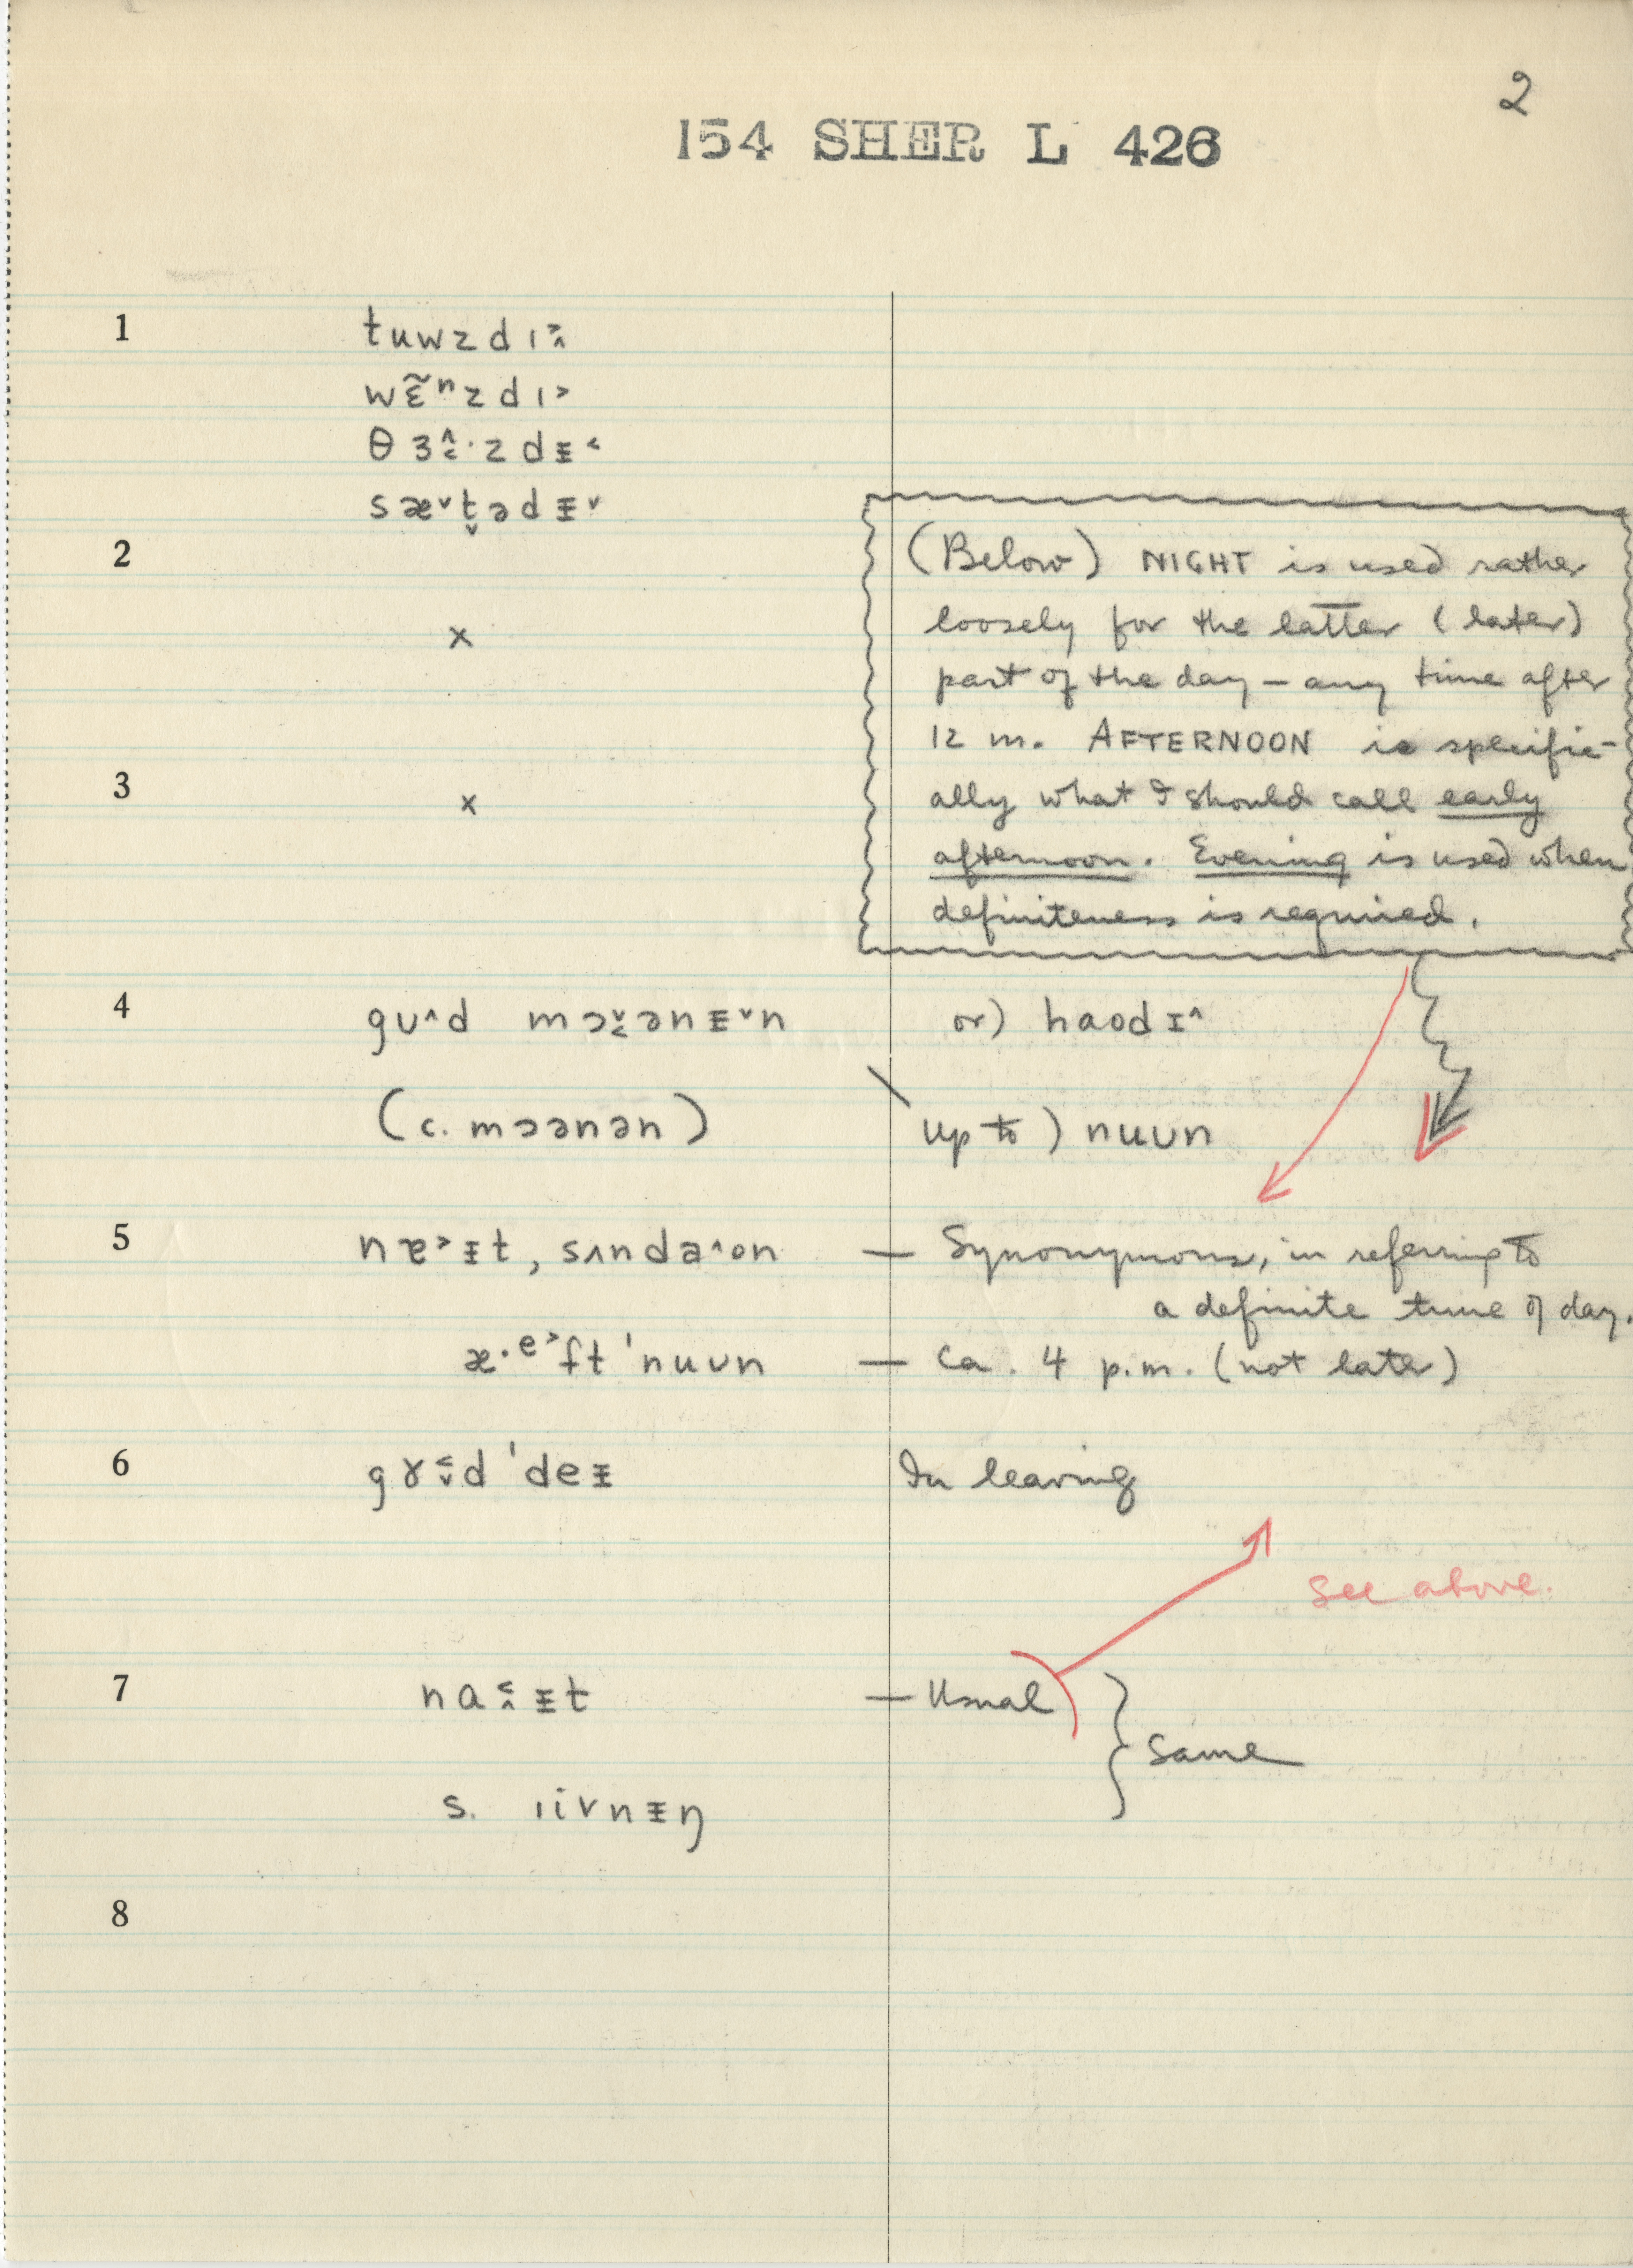 2
154 SHER L 426
1 tuwzdı˃̭
wɛ̃ⁿzdı˃
θɜ˄̬·zdᵻ˂
sæ˅t̬ədᵻ˅
2
(Below) NIGHT is used rather
loosely for the latter (later)
x
part of the day – any time after
12 m. AFTERNOON is specific-
3 x
ally what I should call early
afternoon. Evening is used when
definiteness is required.
4 gʊ˄d mɔ˅˂ənᵻ˅n or) haodɪ˄
(c. mɔənən) up to) nuʊn
5 nɐ˃ᵻt, sʌnda˄on — Synonymous, in referring to
a definite time of day.
æ·ᵉ˃ft ˈnuʊn — Ca. 4 p.m. (not later)
6 gɤ˂˅d ˈdeᵻ In leaving
See above.
7 na˂˄ᵻt — Usual
Same
s. ıivnᵻŋ
8